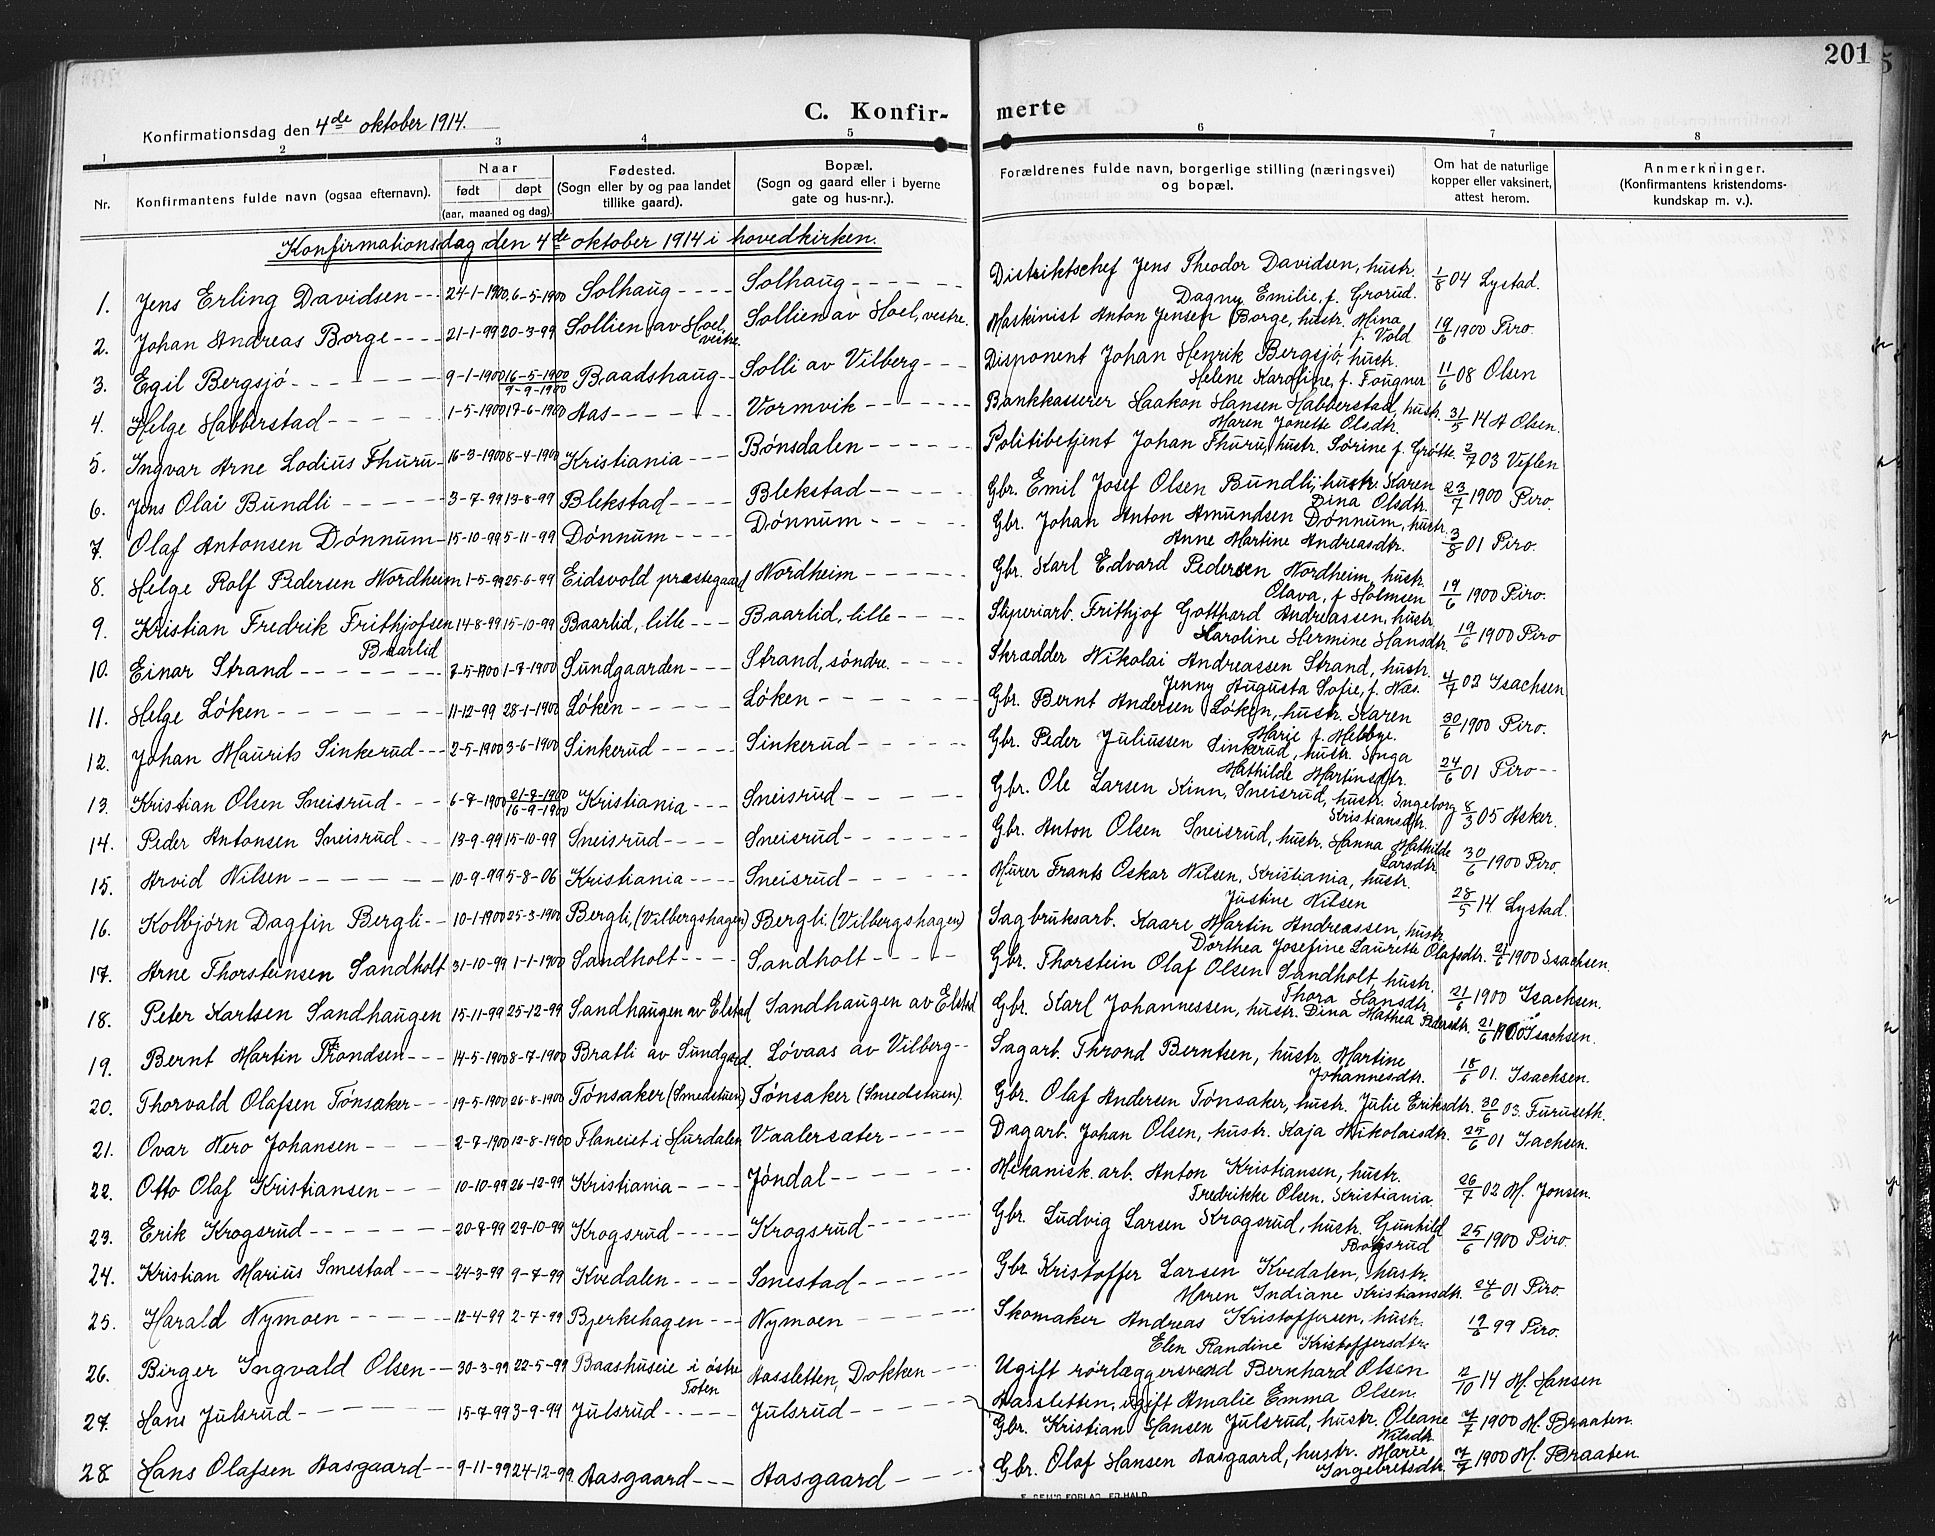 201
C. Konfir- merte
Konfirmationsdag den 4de oktober 1914.
1 2 3 4 5 6 7 8
Nr. Konfirmantens fulde navn (ogsaa efternavn). Naar født døpt (aar, maaned og dag). Fødested. (Sogn eller by og paa landet tillike gaard). Bopæl. (Sogn og gaard eller i byerne gate og hus-nr.). Forældrenes fulde navn, borgerlige stilling (næringsvei) og bopæl. Om hat de naturlige kopper eller vaksinert, attest herom. Anmerkninger. (Konfirmantens kristendoms- kundskap m. v.).
Konfirmationsdag den 4de oktober 1914 i hovedkirken.
1. Jens Erling Davidsen 24-1-1900 6-5-1900 Solhaug Solhaug Distriktschef Jens Theodor Davidsen, hustr. Dagny Emilie, f. Grorud. 1/8 04 Lystad.
2. Johan Andreas Borge 21-1-99 20-3-99 Sollien av Hoel, vestre. Sollien av Hoel, vestre. Maskinist Anton Jensen Borge, hustr. Mina f. Vold 19/6 1900 Piro.
3. Egil Bergsjø 9-1-1900 16-5-1900 9-9-1900 Baadshaug Solli av Vilberg Disponent Johan Henrik Bergsjø, hustr. Helene Karoline, f. Fougner 11/6 08 Olsen
4. Helge Habberstad 1-5-1900 17-6-1900 Aas Vormvik Bankkasserer Haakon Hansen Habberstad, hustr. Maren Jonette Olsdtr. 31/5 14 A Olsen.
5. Ingvar Arne Lodius Thuru 16-3-1900 8-4-1900 Kristiania Bønsdalen Politibetjent Johan Thuru, hustr. Sørine f. Grøtte. 2/7 03 Veflen
6. Jens Olai Bundli 3-7-99 13-8-99 Blekstad Blekstad Gbr. Emil Josef Olsen Bundli, hustr. Karen Dina Olsdtr. 23/7 1900 Piro.
7. Olaf Antonsen Dønnum 15-10-99 5-11-99 Dønnum Dønnum Gbr. Johan Anton Amundsen Dønnum, hustr. Anne Martine Andreasdtr. 3/8 01 Piro.
8. Helge Rolf Pedersen Nordheim 1-5-99 25-6-99 Eidsvold præstegaard Nordheim Gbr. Karl Edvard Pedersen Nordheim, hustr. Olava, f. Holmsen 19/6 1900 Piro.
9. Kristian Fredrik Frithjofsen Baarlid 14-8-99 15-10-99 Baarlid, lille Baarlid, lille Sliperiarb. Frithjof Gotthard Andreassen, hustr. Karoline Hermine Hansdtr. 19/6 1900 Piro
10. Einar Strand 7-5-1900 1-7-1900 Sundgaarden Strand, søndre. Skrædder Nikolai Andreassen Strand, hustr. Jenny Augusta Sofie, f. Næs. 4/7 02 Isachsen
11. Helge Løken 11-12-99 28-1-1900 Løken Løken Gbr. Bernt Andersen Løken, hustr. Karen Marie f. Melbye. 30/6 1900 Piro.
12. Johan Maurits Sinkerud 2-5-1900 3-6-1900 Sinkerud Sinkerud Gbr. Peder Juliussen Sinkerud, hustr. Inga Mathilde Martinsdtr. 24/6 01 Piro
13. Kristian Olsen Sneisrud 6-7-1900 21-7-1900 16-9-1900 Kristiania Sneisrud Gbr. Ole Larsen Kinn, Sneisrud, hustr. Ingeborg Kristiansdtr. 8/3 05 Asker.
14. Peder Antonsen Sneisrud 13-9-99 15-10-99 Sneisrud Sneisrud Gbr. Anton Olsen Sneisrud, hustr. Hanna Mathilde Larsdtr. 30/6 1900 Piro.
15. Arvid Nilsen 10-9-99 5-8-06 Kristiania Sneisrud Murer Frants Oskar Nilsen, Kristiania, hustr. Justine Nilsen 28/5 14 Lystad.
16. Kolbjørn Dagfin Bergli 10-1-1900 25-3-1900 Bergli, (Vilbergshagen) Bergli (Vilbergshagen) Sagbruksarb. Kaare Martin Andreassen, hustr. Dorthea Josefine Laurette Olafsdtr. 21/6 1900 Isachsen.
17. Arne Thorsteinsen Sandholt 31-10-99 1-1-1900 Sandholt Sandholt Gbr. Thorstein Olaf Olsen Sandholt, hustr. Thora Hansdtr. 21/6 1900 Isachsen.
18. Peter Karlsen Sandhaugen 15-11-99 25-12-99 Sandhaugen av Elstad Sandhaugen av Elstad Gbr. Karl Johannessen, hustr. Dina Mathea Pedersdtr. 21/6 1900 Isachsen.
19. Bernt Martin Trondsen 14-5-1900 8-7-1900 Bratli av Sundgaard. Løvaas av Vilberg Sagarb. Thrond Berntsen, hustr. Martine Johannesdtr. 18/6 01. Isachsen.
20. Thorvald Olafsen Tønsaker 19-5-1900 26-8-1900 Tønsaker (Smedstuen) Tønsaker (Smedstuen). Gbr. Olaf Andersen Tønsaker, hustr. Julie Eriksdtr. 30/6 03. Furuseth.
21. Ovar Nero Johansen 2-7-1900 12-8-1900 Flaneiet i Hurdalen Vaalersæter Dagarb. Johan Olsen, hustr. Kaja Nikolaisdtr. 25/6 01 Isachsen.
22. Otto Olaf Kristiansen 10-10-99 26-12-99 Kristiania Jøndal Mekanisk arb. Anton Kristiansen, hustr. Fredrikke Olsen, Kristiania 26/7 02 M. Jonsen.
23. Erik Krogsrud 20-8-99 29-10-99 Krogsrud Krogsrud Gbr. Ludvig Larsen Krogsrud, hustr. Gunhild Bogsrud 25/6 1900 Piro.
24. Kristian Marius Smestad 24-3-99 9-7-99 Kvedalen Smestad Gbr Kristoffer Larsen Kvedalen, hustr. Maren Indiane Kristiansdtr. 24/6 01 Piro
25. Harald Nymoen 12-4-99 2-7-99 Bjerkehagen Nymoen Skomaker Andreas Kristoffersen, hustr. Elen Randine Kristoffersdtr. 19/6 99 Piro.
26. Birger Ingvald Olsen 30-3-99 22-5-99 Baashuseie i østre Toten Aassletten, Dokken Ugift rørlæggersvend Bernhard Olsen Aassletten, ugift Amalie Emma Olsen. 2/10 14 M. Hansen
27. Hans Julsrud 15-7-99 3-9-99 Julsrud Julsrud Gbr. Kristian Hansen Julsrud, hustr. Oleane Nilsdtr. 7/7 1900 M. Braaten.
28. Hans Olafsen Aasgaard 9-11-99 24-12-99. Aasgaard Aasgaard Gbr. Olaf Hansen Aasgaard, hustr. Marie Ingebretsdtr. 7/7 1900 M. Braaten.